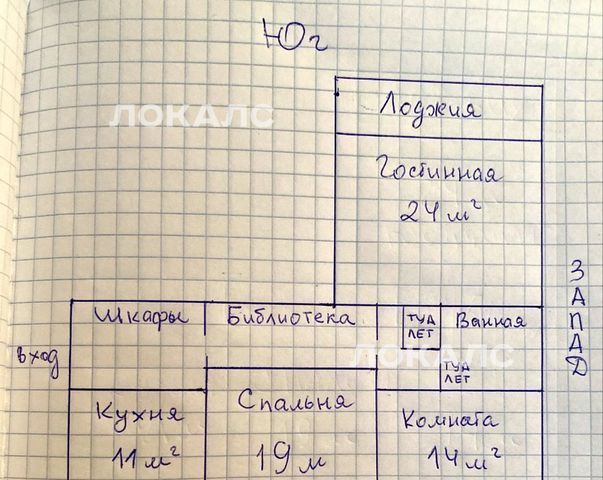 Юг
ЛОКАЛС
Лоджия
Гостинная
24 м²
ЗАПАД
Шкафы
Библиотека
ТУА
ЛЕТ
Ванная
вход
ЛОКАЛС
ТУА
ЛЕТ
Кухня
11 м²
Спальня
19 м
Комната
14 м²